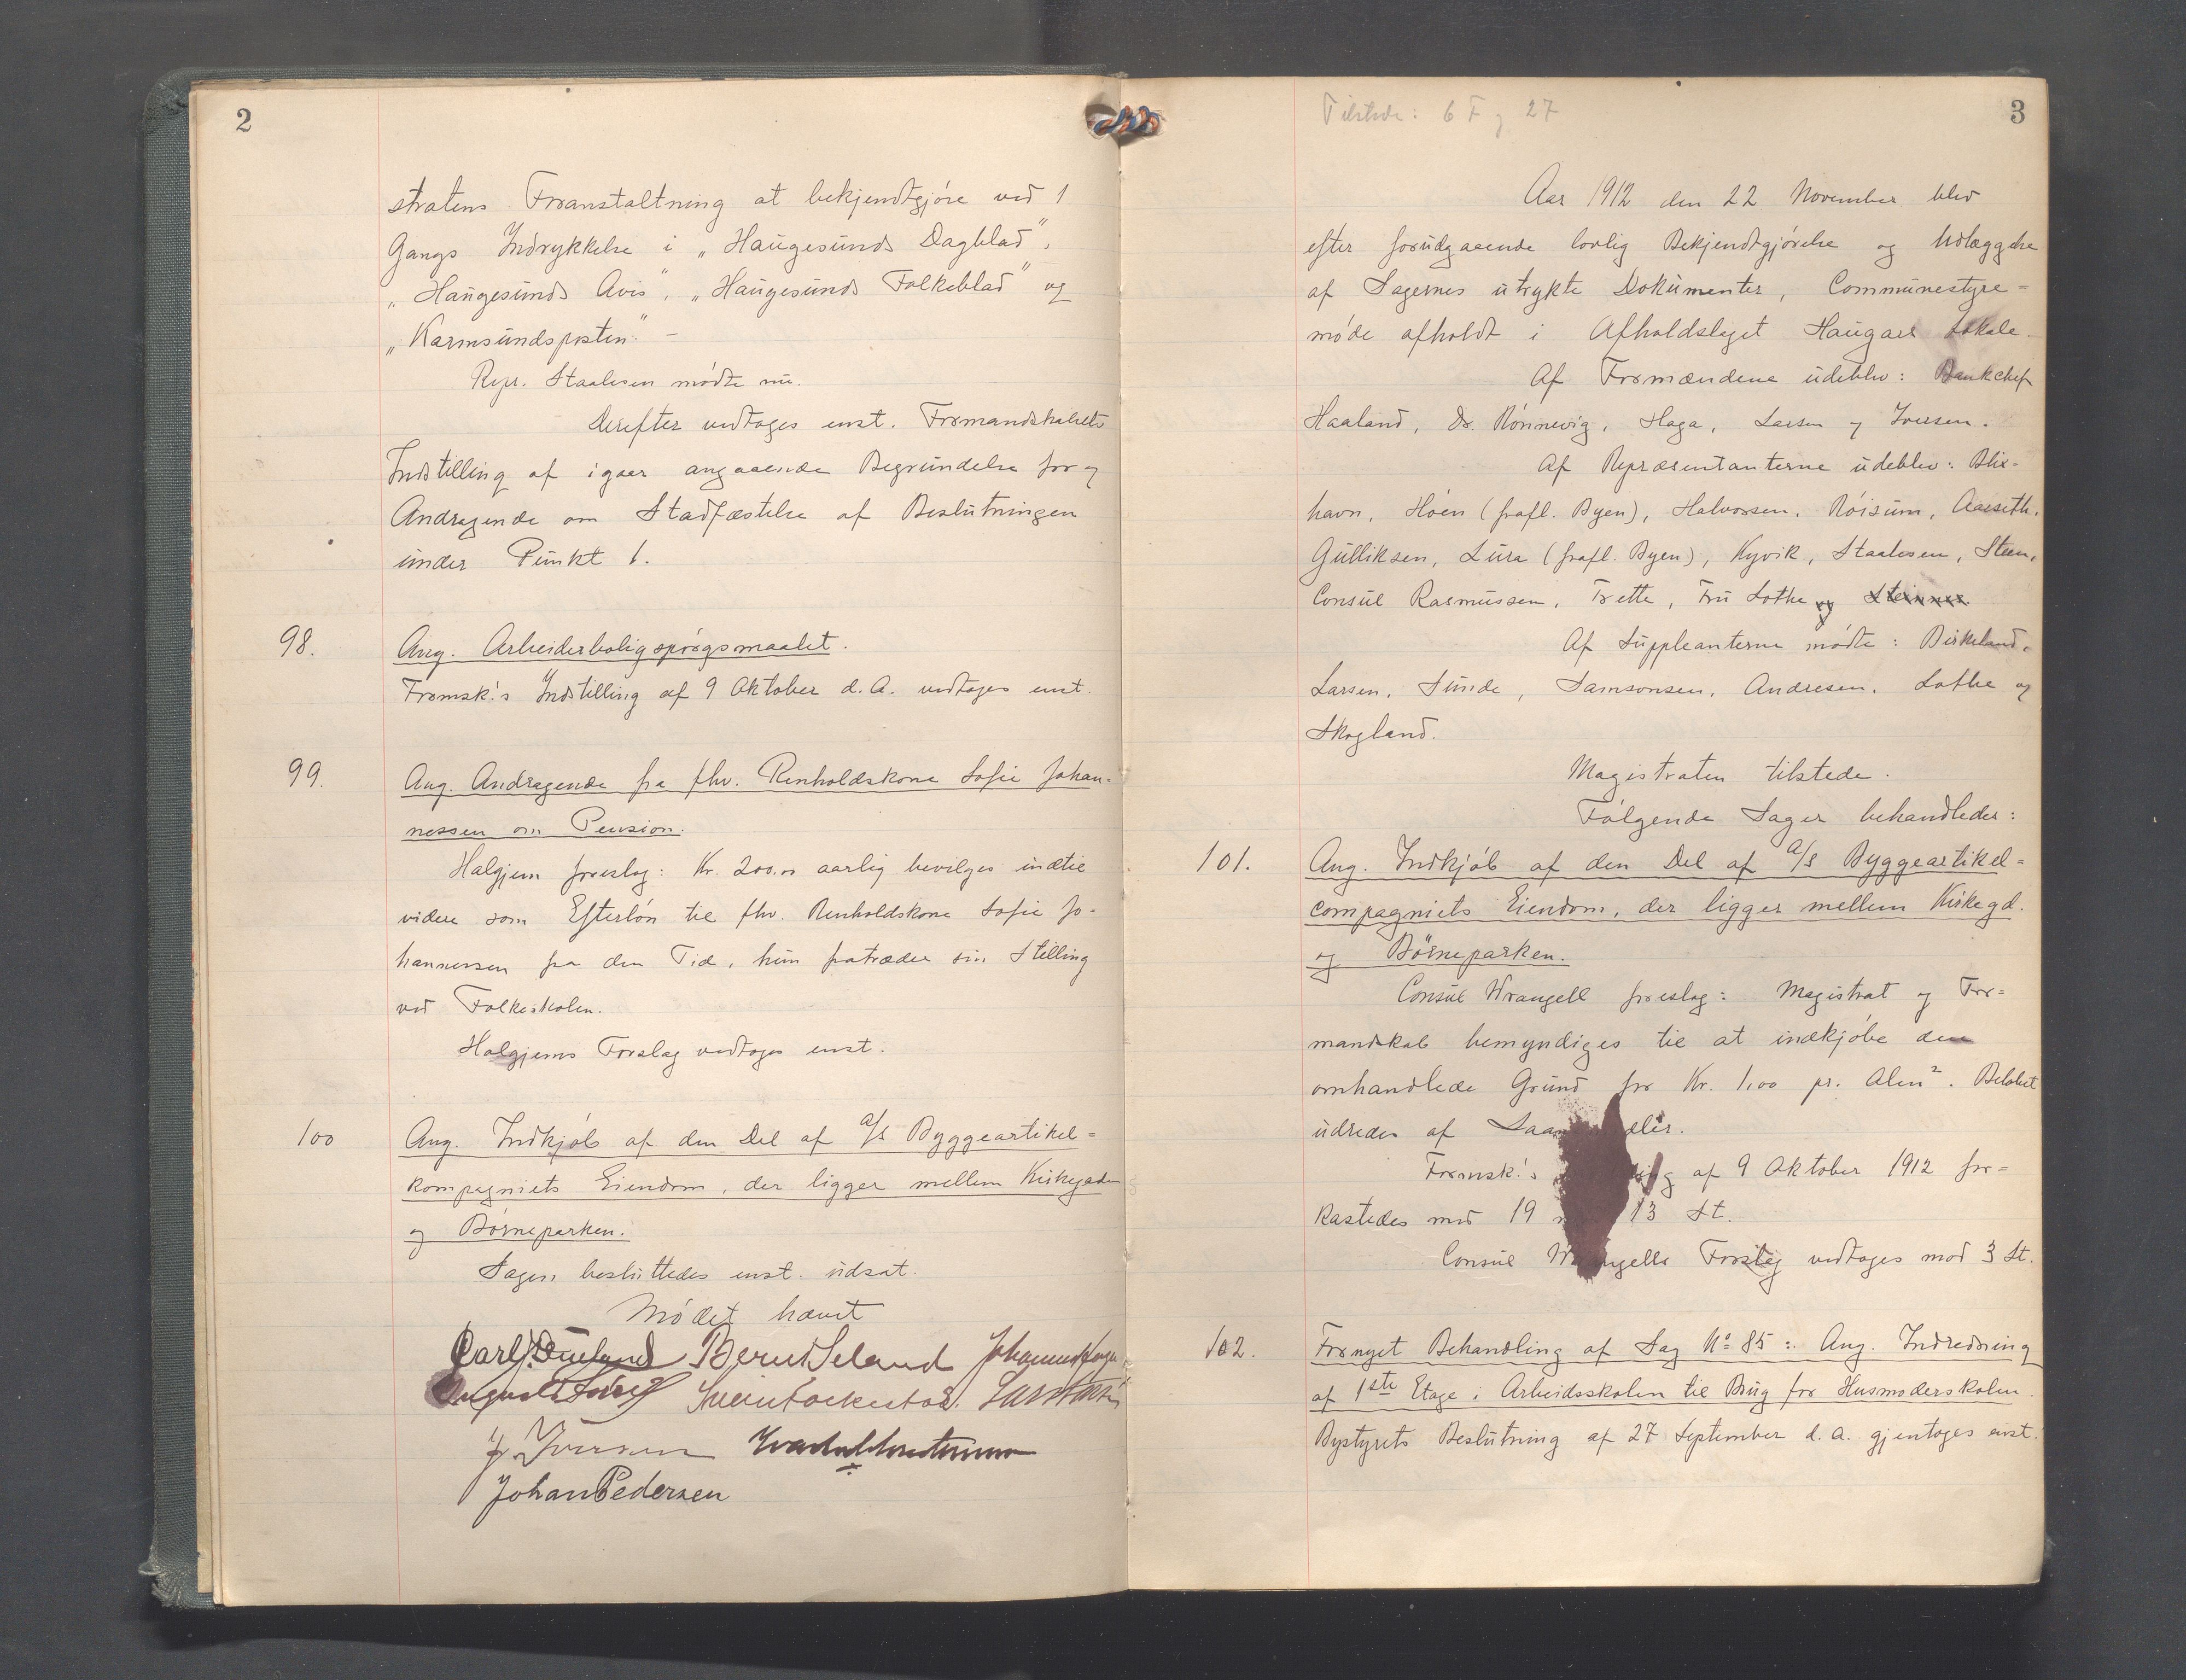 2
stratens Foranstaltning at bekjendtgjöre ved 1
Gangs Indrykkelse i „Haugesunds Dagblad",
„Haugesunds Avis", „Haugesunds Folkeblad" og
„Karmsundsposten". –
Repr. Staalesen mödte nu.
Derefter vedtoges enst. Formandskabets
Indstilling af igaar angaaende Begrundelse for og
Andragende om Stadfæstelse af Beslutningen
under Punkt 1.
98.
Ang. Arbeiderboligspörgsmaalet.
Formsk.'s Indstilling af 9 Oktober d. A. vedtoges enst.
99.
Ang. Andragende fra fhv. Renholdskone Sofie Johan-
nessen om Pension.
Halgjem foreslog: Kr. 200.00 aarlig bevilges indtil
videre som Efterlön til fhv. Renholdskone Sofie Jo-
hannessen fra den Tid, hun fratræder sin Stilling
ved Folkeskolen.
Halgjems Forslag vedtoges enst.
100
Ang. Indkjöb af den Del af A/S Byggeartikel=
kompagniets Eiendom, der ligger mellem Kirkegaden
og Börneparken.
Sagen besluttedes enst. udsat.
Mödet hævet
Bernt Seland Johannes
J. Iversen
Johan Pedersen
Tilstede: 6 F og 27
3
Aar 1912 den 22 November blev
efter forudgaaende lovlig Bekjendtgjörelse og Udlæggelse
af Sagernes utrykte Dokumenter, Communestyre=
möde afholdt i Afholdslaget Haugars Lokale.
Af Formændene udeblev: Bankchef
Haaland, Dr. Rönnevig, Haga, Larsen og Iversen.
Af Repræsentanterne udeblev: Blix-
havn, Höen (frafl. Byen), Halvorsen, Röisum, Aarseth,
Gulliksen, Lura (frafl. Byen), Kyvik, Staalesen, Steen,
Consul Rasmussen, Trette, Fru Lothe og
Af Suppleanterne mödte: Birkeland,
Larsen, Sunde, Samsonsen, Andresen, Lothe og
Skogland.
Magistraten tilstede.
Fölgende Sager behandledes:
101.
Ang. Indkjöb af den Del af A/S Byggeartikel=
compagniets Eiendom, der ligger mellem Kirkegd.
og Börneparken.
Consul Wrangell foreslog: Magistrat og For=
mandskab bemyndiges til at indkjöbe den
omhandlede Grund for Kr. 1,00 pr. Alen². Belöbet
udredes af
Formsk.'s af 9 Oktober 1912 for=
kastedes med 19 13 St.
Consul Wrangells Forslag vedtoges mod 3 St.
102.
Fornyet Behandling af Sag No 85: Ang. Indredning
af 1ste Etage i Arbeidsskolen til Brug for Husmoderskolen.
Bystyrets Beslutning af 27 September d. A. gjentoges enst.